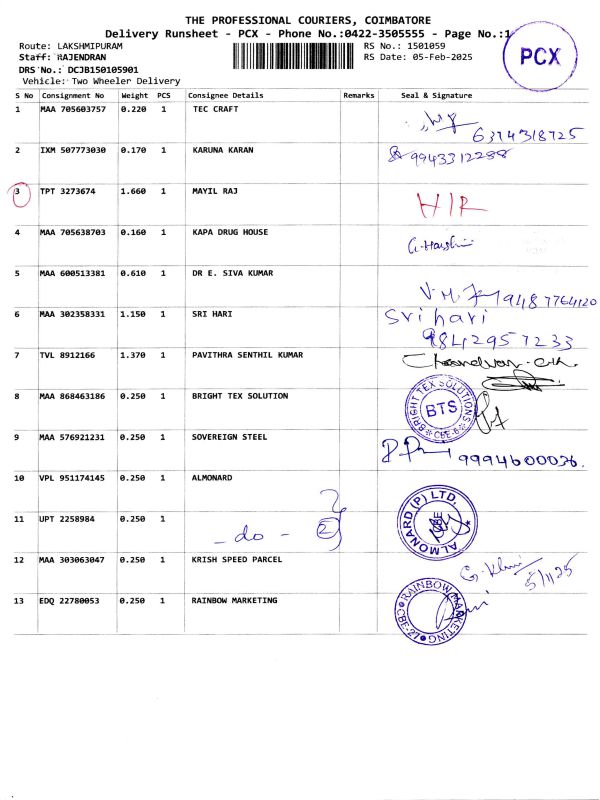 THE PROFESSIONAL COURIERS, COIMBATORE
Delivery Runsheet - PCX - Phone No.:0422-3505555 - Page No.:1
PCX
Route: LAKSHMIPURAM
RS No.: 1501059
Staff: RAJENDRAN
RS Date: 05-Feb-2025
DRS No.: DCJB150105901
Vehicle: Two Wheeler Delivery
S No Consignment No Weight PCS Consignee Details Remarks Seal & Signature
1 MAA 705603757 0.220 1 TEC CRAFT
6374318725
2 IXM 507773030 0.170 1 KARUNA KARAN 9943312288
3 TPT 3273674 1.660 1 MAYIL RAJ H/R
4 MAA 705638703 0.160 1 KAPA DRUG HOUSE
5 MAA 600513381 0.610 1 DR E. SIVA KUMAR
9487764120
6 MAA 302358331 1.150 1 SRI HARI Sri hari
9842957233
7 TVL 8912166 1.370 1 PAVITHRA SENTHIL KUMAR
8 MAA 868463186 0.250 1 BRIGHT TEX SOLUTION BRIGHT TEX SOLUTIONS BTS CBE-6
9 MAA 576921231 0.250 1 SOVEREIGN STEEL 9994600036.
10 VPL 951174145 0.250 1 ALMONARD ALMONARD (P) LTD.
11 UPT 2258984 0.250 1 - do - 2
12 MAA 303063047 0.250 1 KRISH SPEED PARCEL
13 EDQ 22780053 0.250 1 RAINBOW MARKETING RAINBOW MARKETING CBE-27